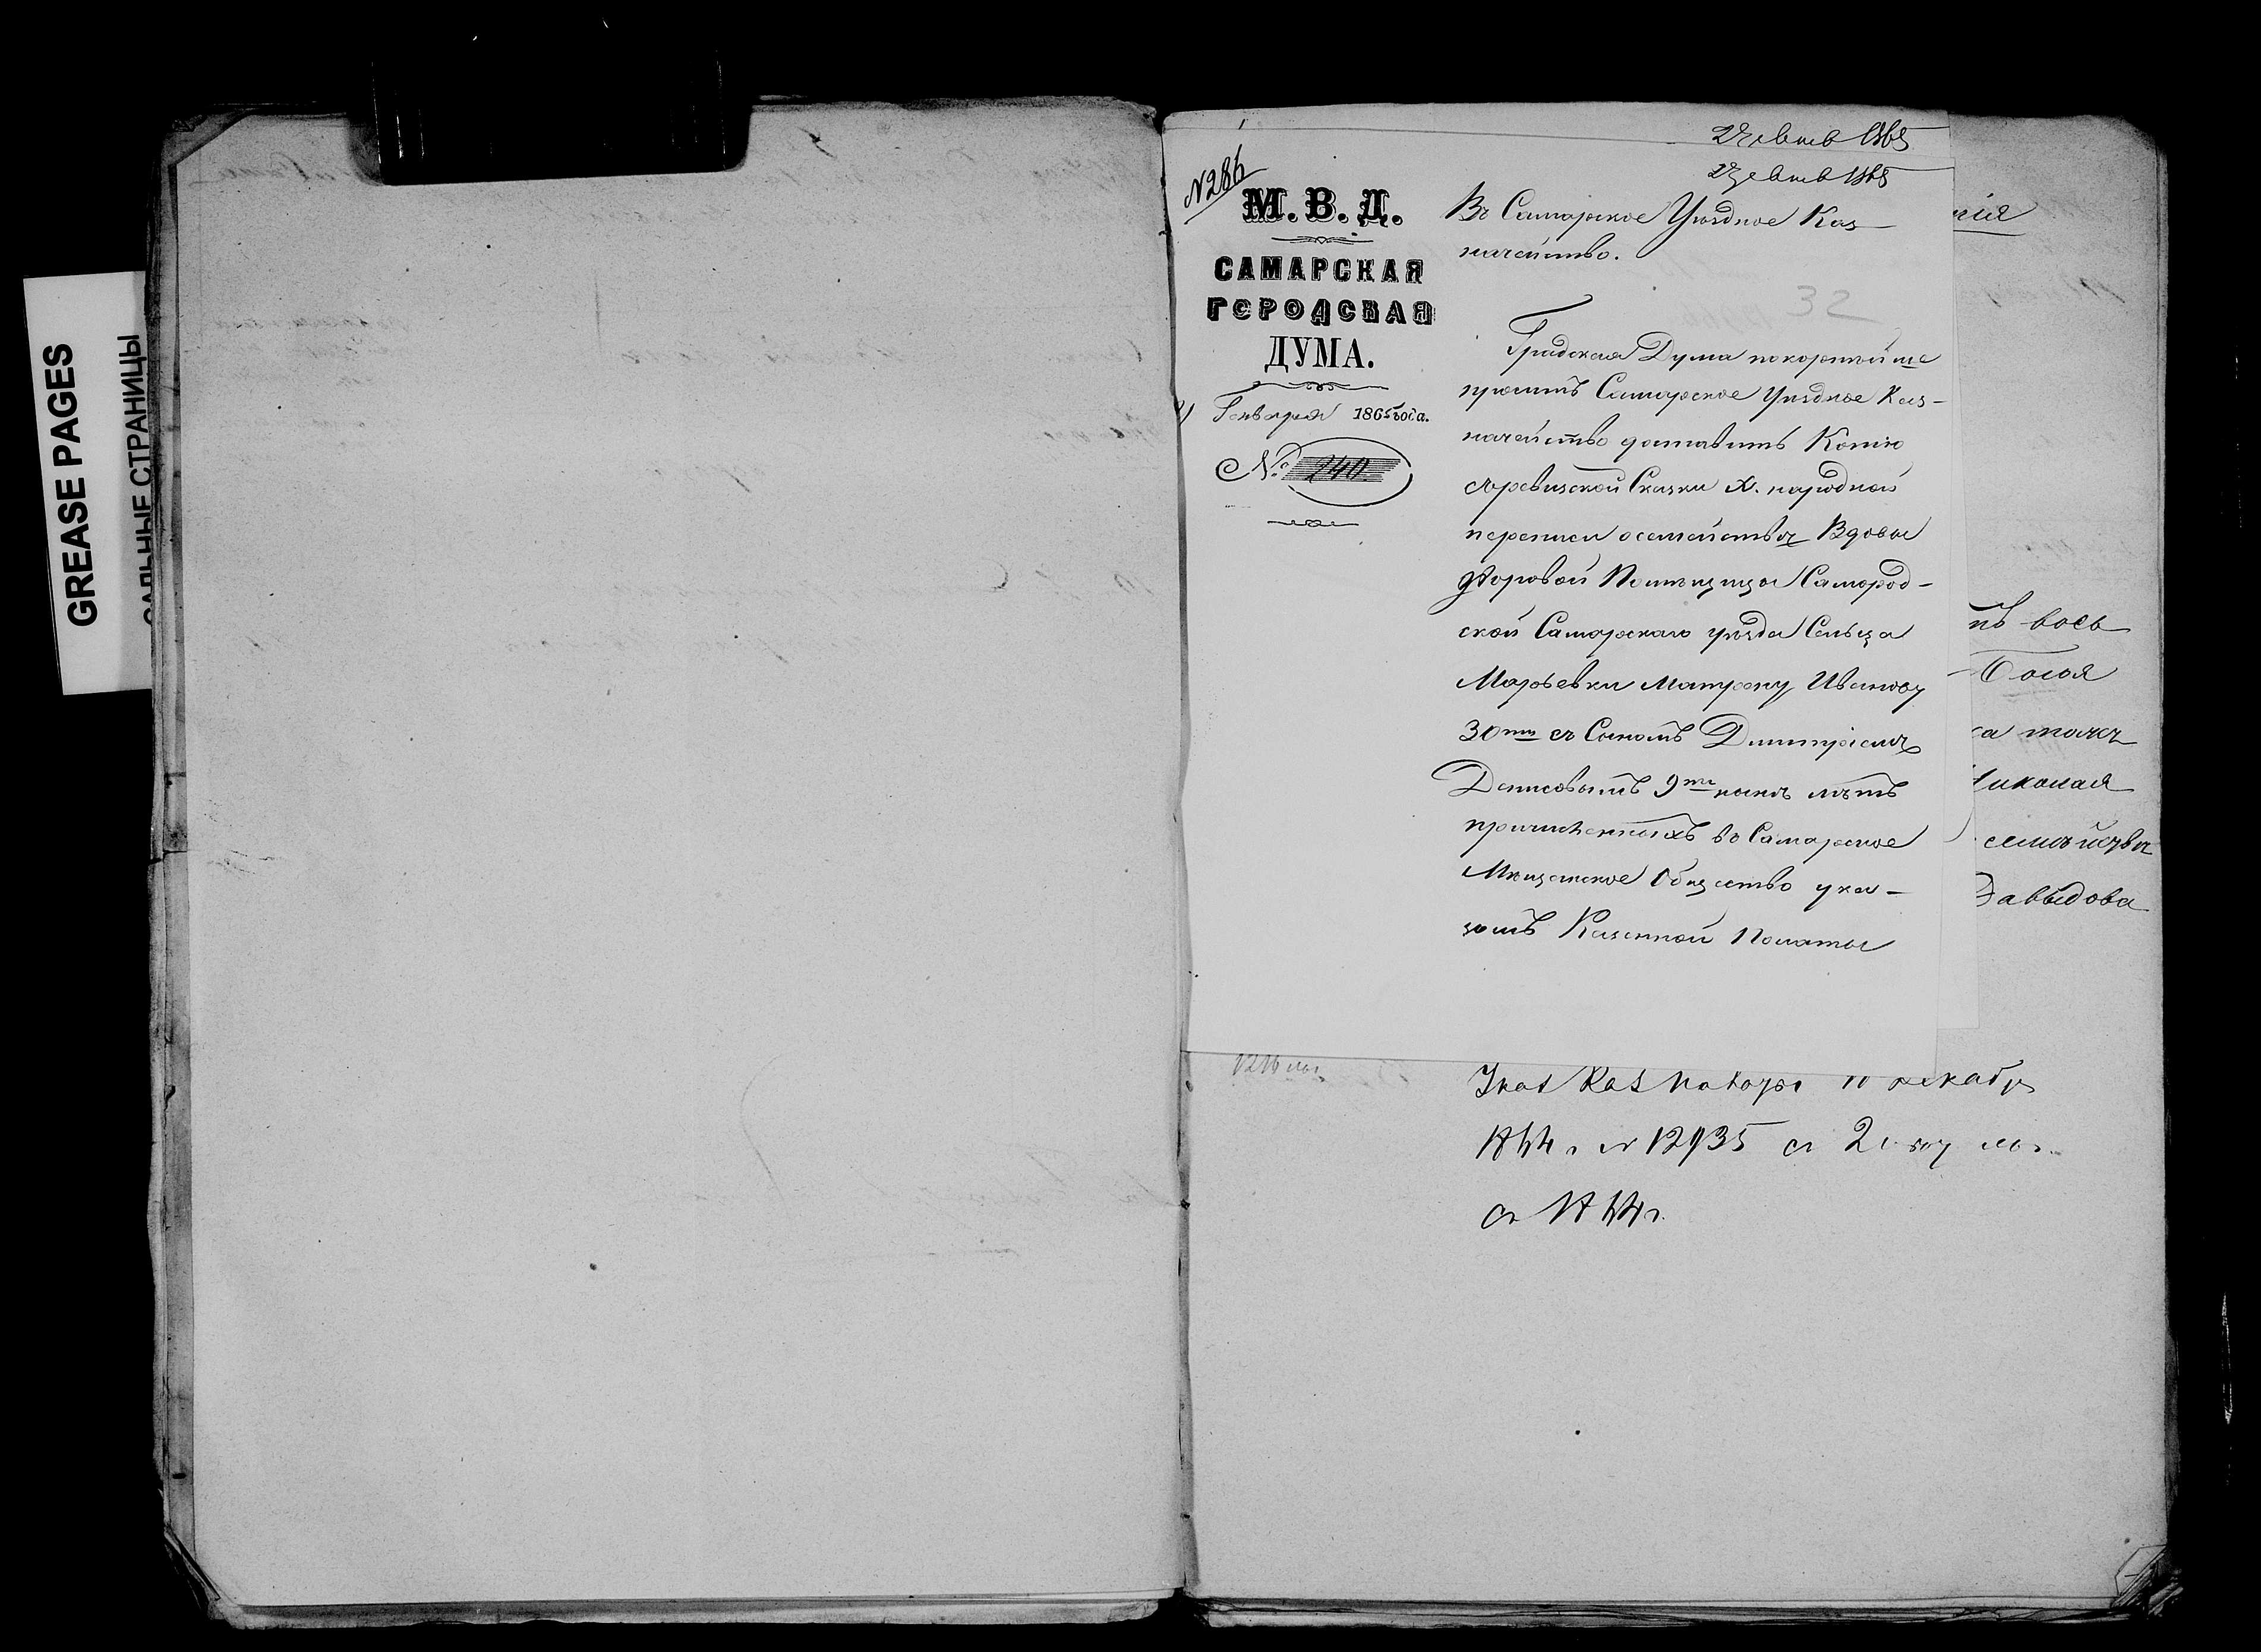 GREASE PAGES
САЛЬНЫЕ СТРАНИЦЫ
№286
М. В. Д.
САМАРСКАЯ
ГОРОДСКАЯ
ДУМА.
Генваря 1865 года.
№ 240
1865
1865
Въ Самарское Уѣздное Каз-
начейство.
32
Градская Дума покорнѣйше
проситъ Самарское Уѣздное Каз-
начейство доставить Копію
съ ревизской Сказки X. народной
переписи о семействѣ Вдовы
дворовой Помѣщицы Самород-
ской Самарскаго уѣзда Сельца
Марьевки Матрену Иванову
30ти съ Сыномъ Димитріемъ
Денисовымъ 9ти нынѣ лѣтъ
причисленныхъ въ Самарское
Мѣщанское Общество ука-
зомъ Казенной Палаты
нія
восъ
Николая
семѣйства
Давыдова
Указ Каз Палаты 10 декабр
1864 г № 12935 съ 2
съ 1864 г.